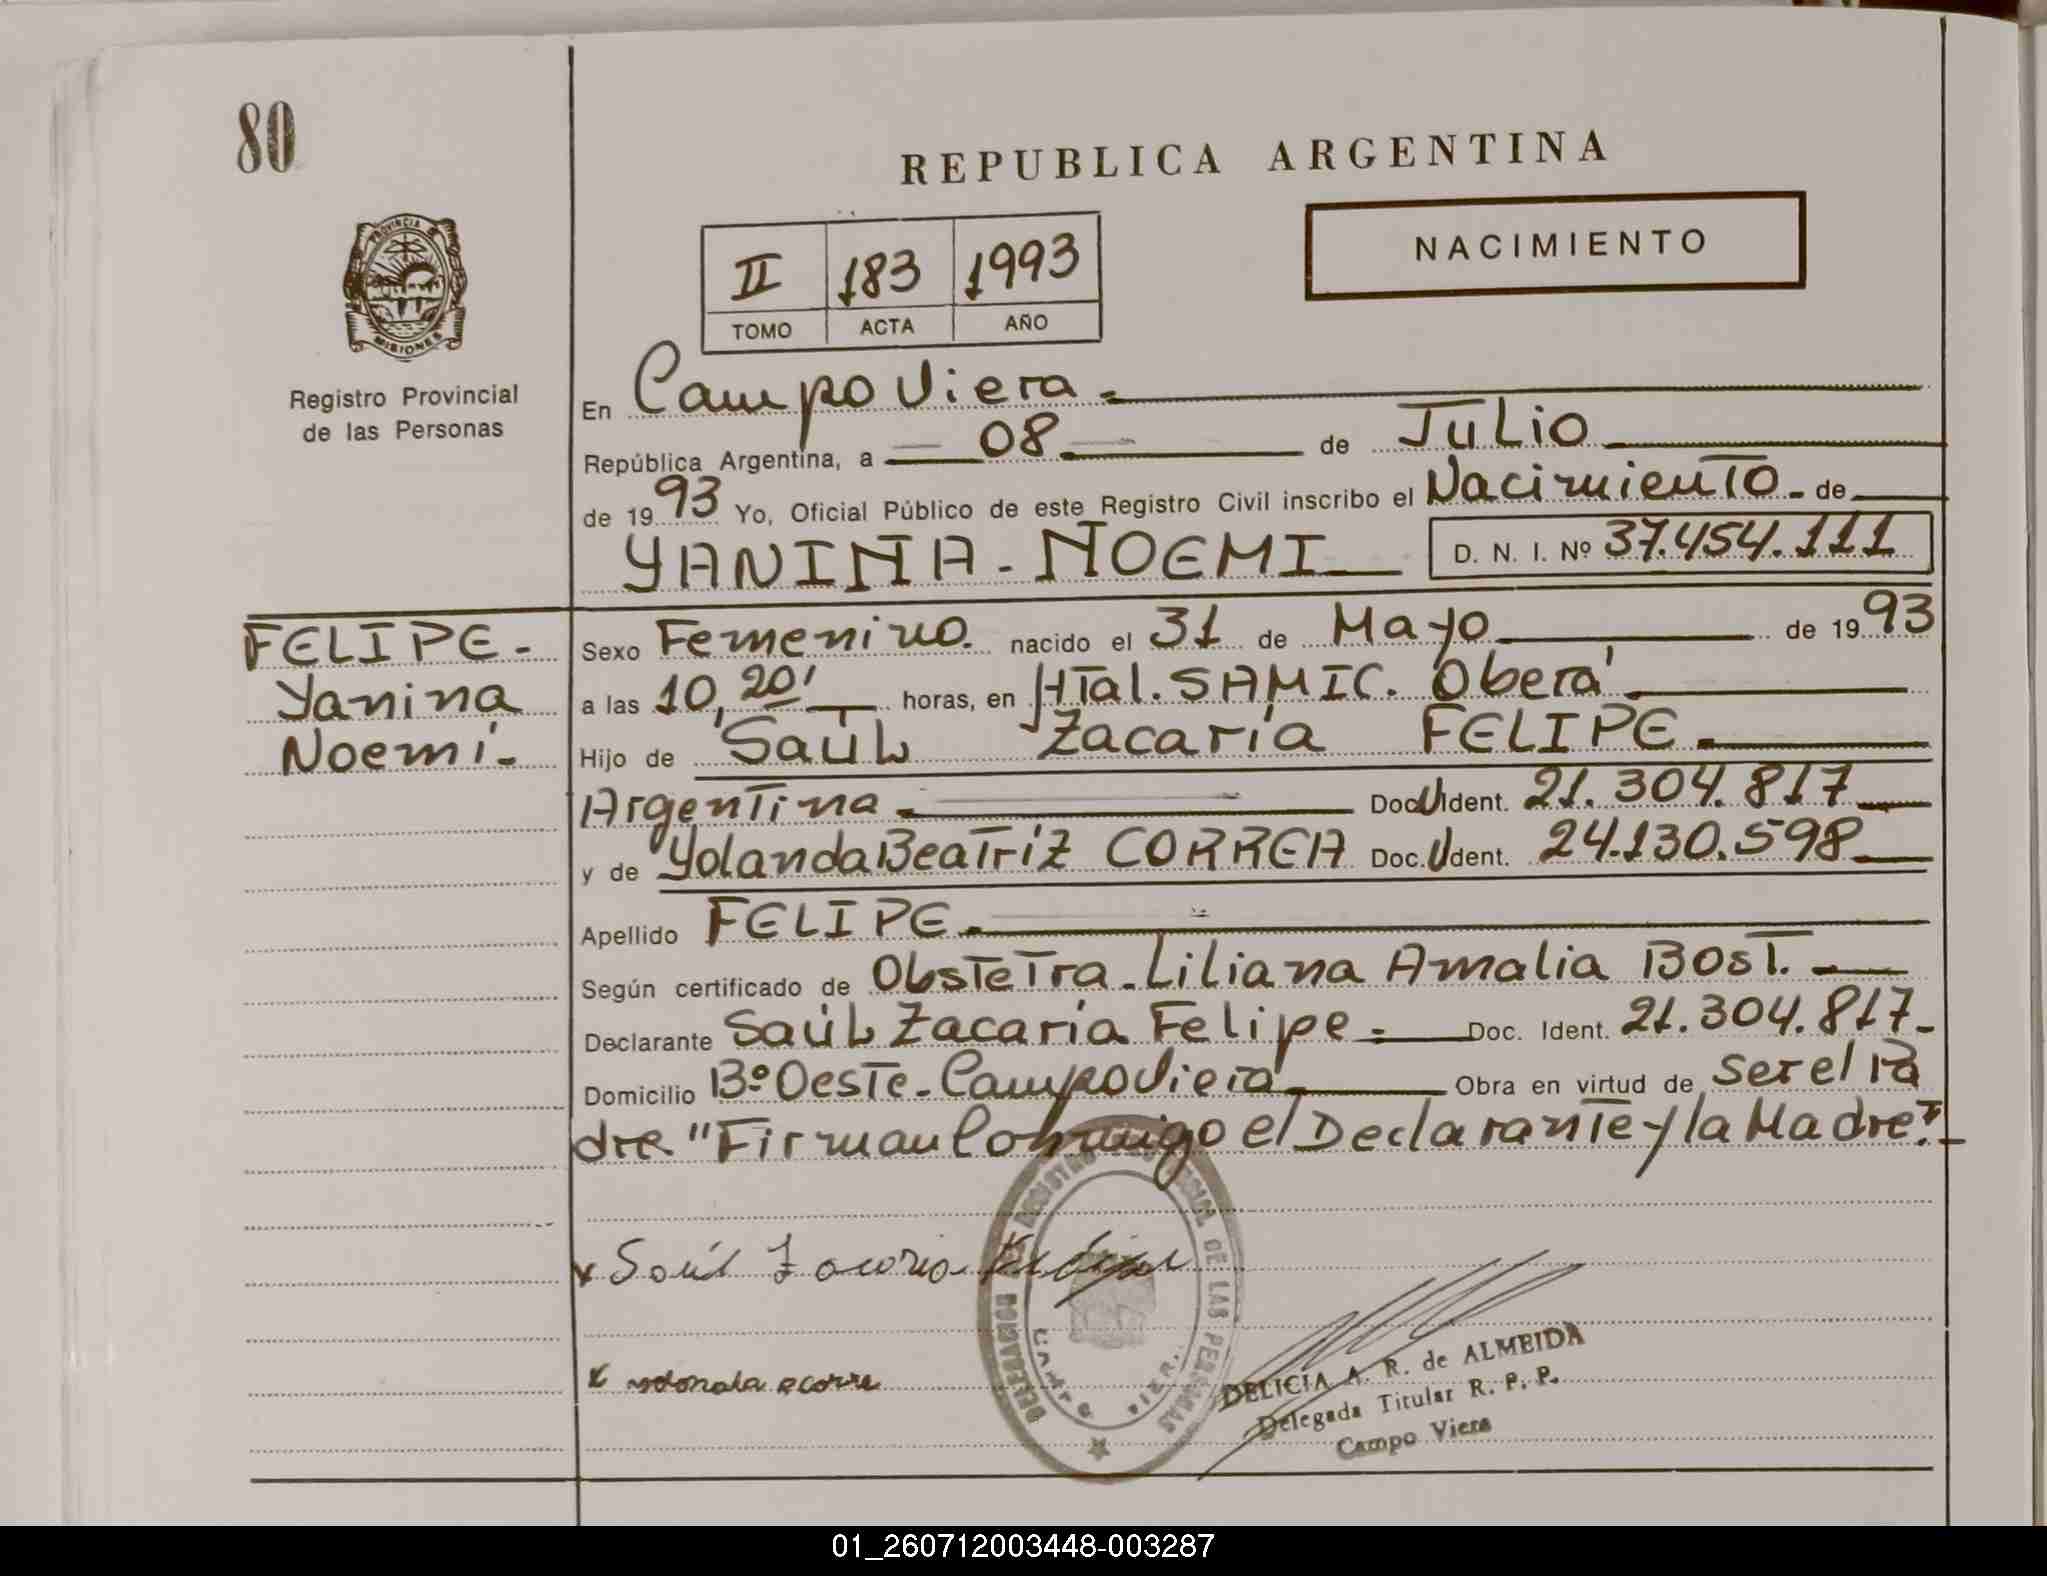 80
REPUBLICA ARGENTINA
PROVINCIA DE
MISIONES
Registro Provincial
de las Personas
NACIMIENTO
II 183 1993
TOMO ACTA AÑO
En Campo Viera
República Argentina, a 08 de Julio
de 1993 Yo, Oficial Público de este Registro Civil inscribo el Nacimiento - de
YANINA - NOEMI D. N. I. Nº 37.454.111
FELIPE -
Yanina
Noemí -
Sexo Femenino. nacido el 31 de Mayo de 1993
a las 10,20' horas, en HTal. SAMIC. Oberá
Hijo de Saúl Zacaría FELIPE
Argentina Doc. Ident. 21.304.817
y de Yolanda Beatríz CORREA Doc. Ident. 24.130.598
Apellido FELIPE
Según certificado de Obstetra - Liliana Amalia BOST.
Declarante Saúl Zacaría Felipe Doc. Ident. 21.304.817 -
Domicilio Bº Oeste - Campo Viera Obra en virtud de ser el Pa
dre "Firman Conmigo el Declarante y la Madre" -
Saúl Zacaria Felipe
DELEGACION REGISTRO PROVINCIAL DE LAS PERSONAS
CAMPO VIERA
DELICIA A. R. de ALMEIDA
Delegada Titular R. P. P.
Campo Viera
01_260712003448-003287